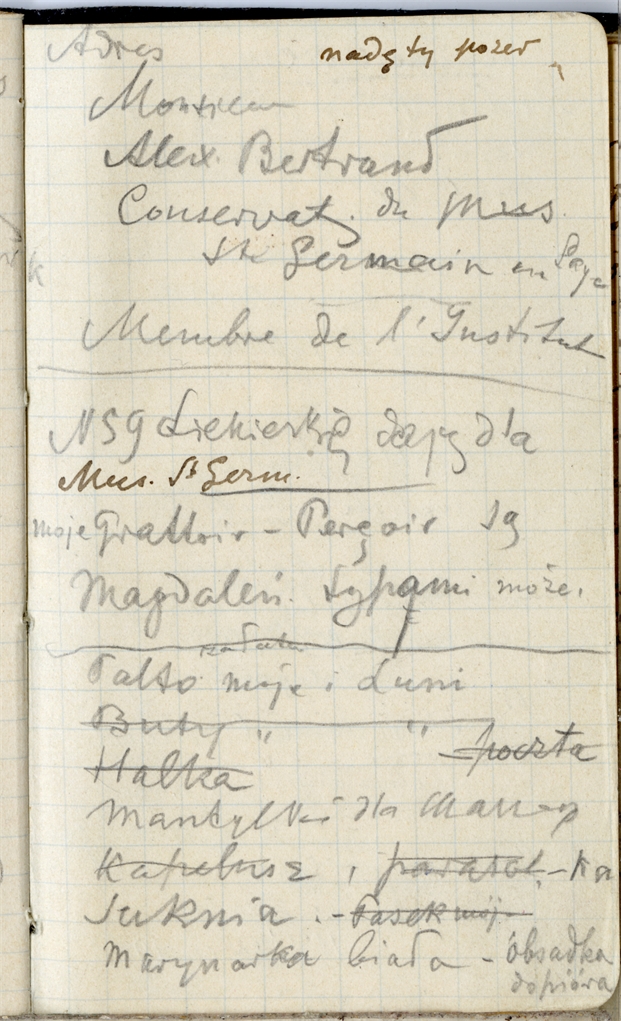 Adres
nadęty pozer
Monsieur
Alex. Bertrand
Conservat. du Mus
St Germain en Laye
Membre de l'Institut
dają dla
Mus. St Germ.
moje Grattoir - Perçoir są
Magdaleń. typami może.
Palto moje i Luni
Buty " "
poczta
Halka
Mantylki dla
Kapelusz, parasol - ka
Suknia. - Pasek mój
Marynarka biała - obsadka
do pióra